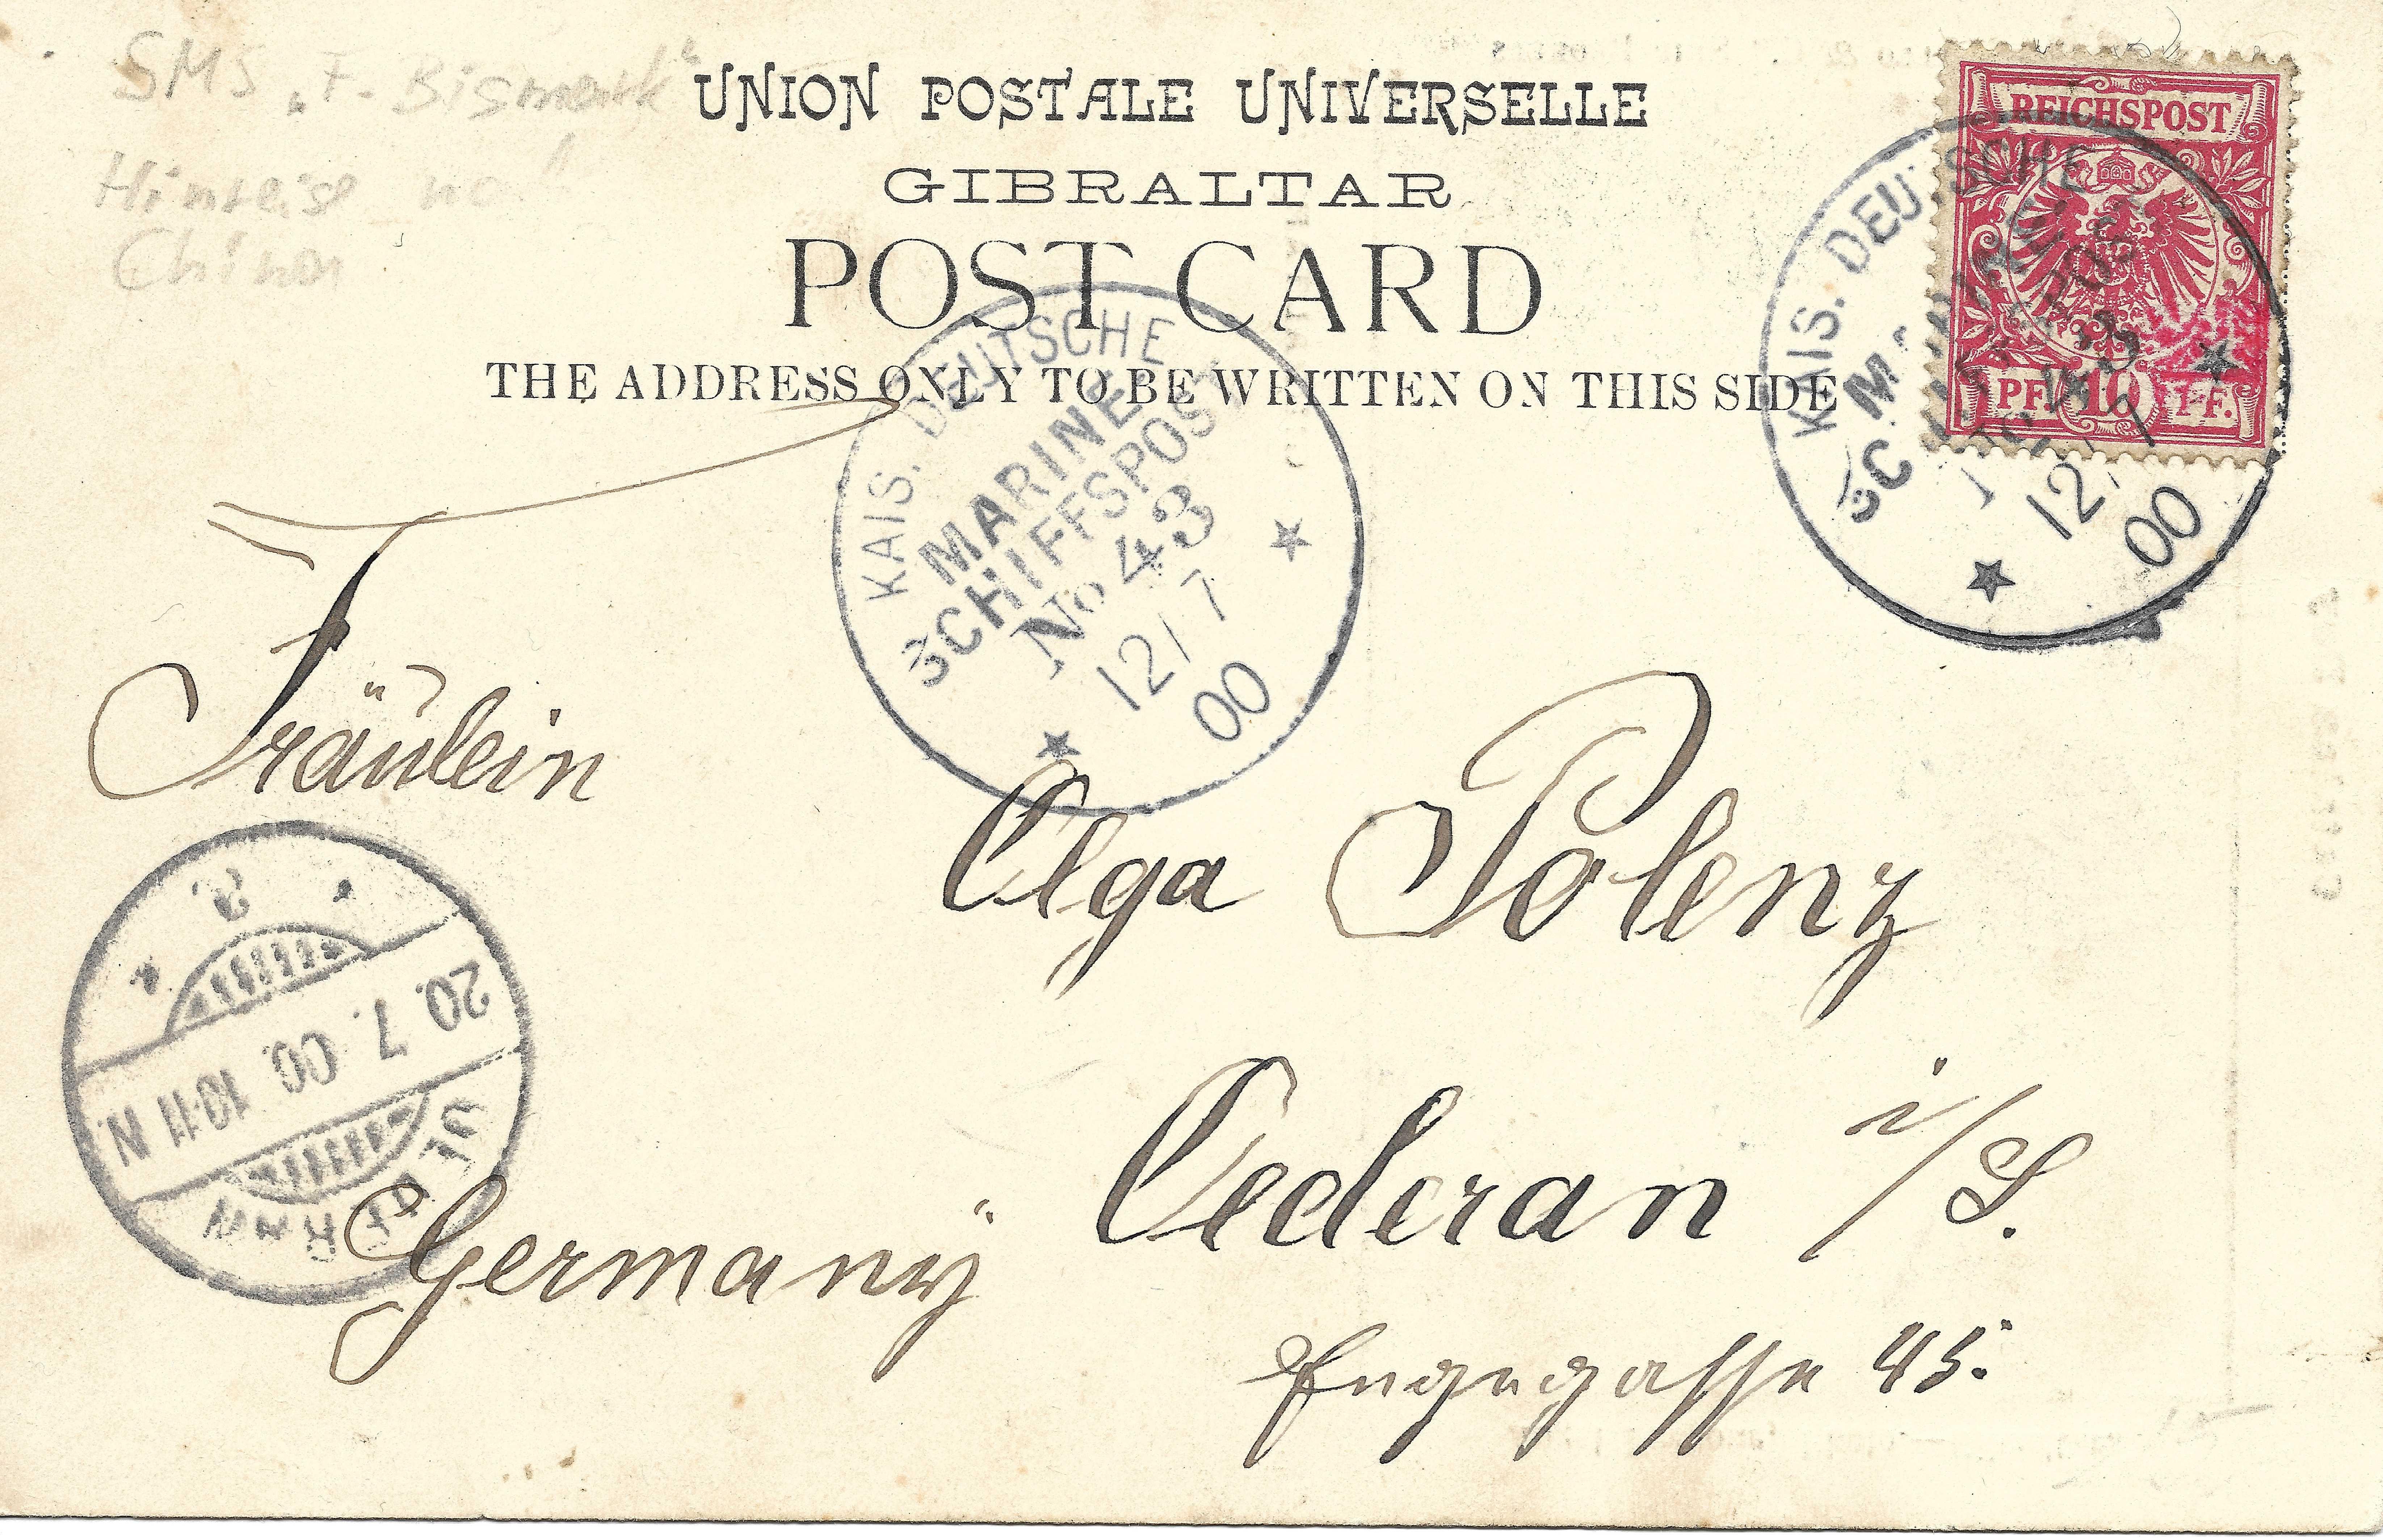 SMS „F. Bismark“
Hinreise na
China
UNION POSTALE UNIVERSELLE
GIBRALTAR
POST CARD
THE ADDRESS ONLY TO BE WRITTEN ON THIS SIDE
REICHSPOST
PF. 10 PF.
KAIS. DEUTSCHE
MARINE
SCHIFFSPOST
No 43
12/7
00
KAIS. DEUTSCHE
MARINE
SCHIFFSPOST
No 43
12/7
00
Fräulein
Olga Polenz
Oederan i/S.
Germany
Engegasse 45.
OEDERAN
20.7.00. 10-11 N.
a